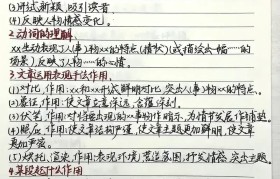 (3)形式新颖,吸引读者.
(4)反映人物情感变化.
2.动词的理解
xx生动表现了人(事)物xx的特点(情状)(或描绘出一幅……的
场景)反映人物……的心情.
3.文章运用表现手法作用
(1)对比,作用:xx和xx形成鲜明对比,突出人(事)物xx的特点.
(2)象征,作用:使文章立意深远,含蓄深刻.
(3)伏笔,作用:对将要出现的xx事物作暗示,为情节发展作铺垫.
(4)照应,作用:使文章结构严谨,使文章主题更加鲜明,使文章
更加严密.
(5)烘托、渲染,作用:表现环境,营造氛围,抒发情感,突出主题.
4.某段起什么作用